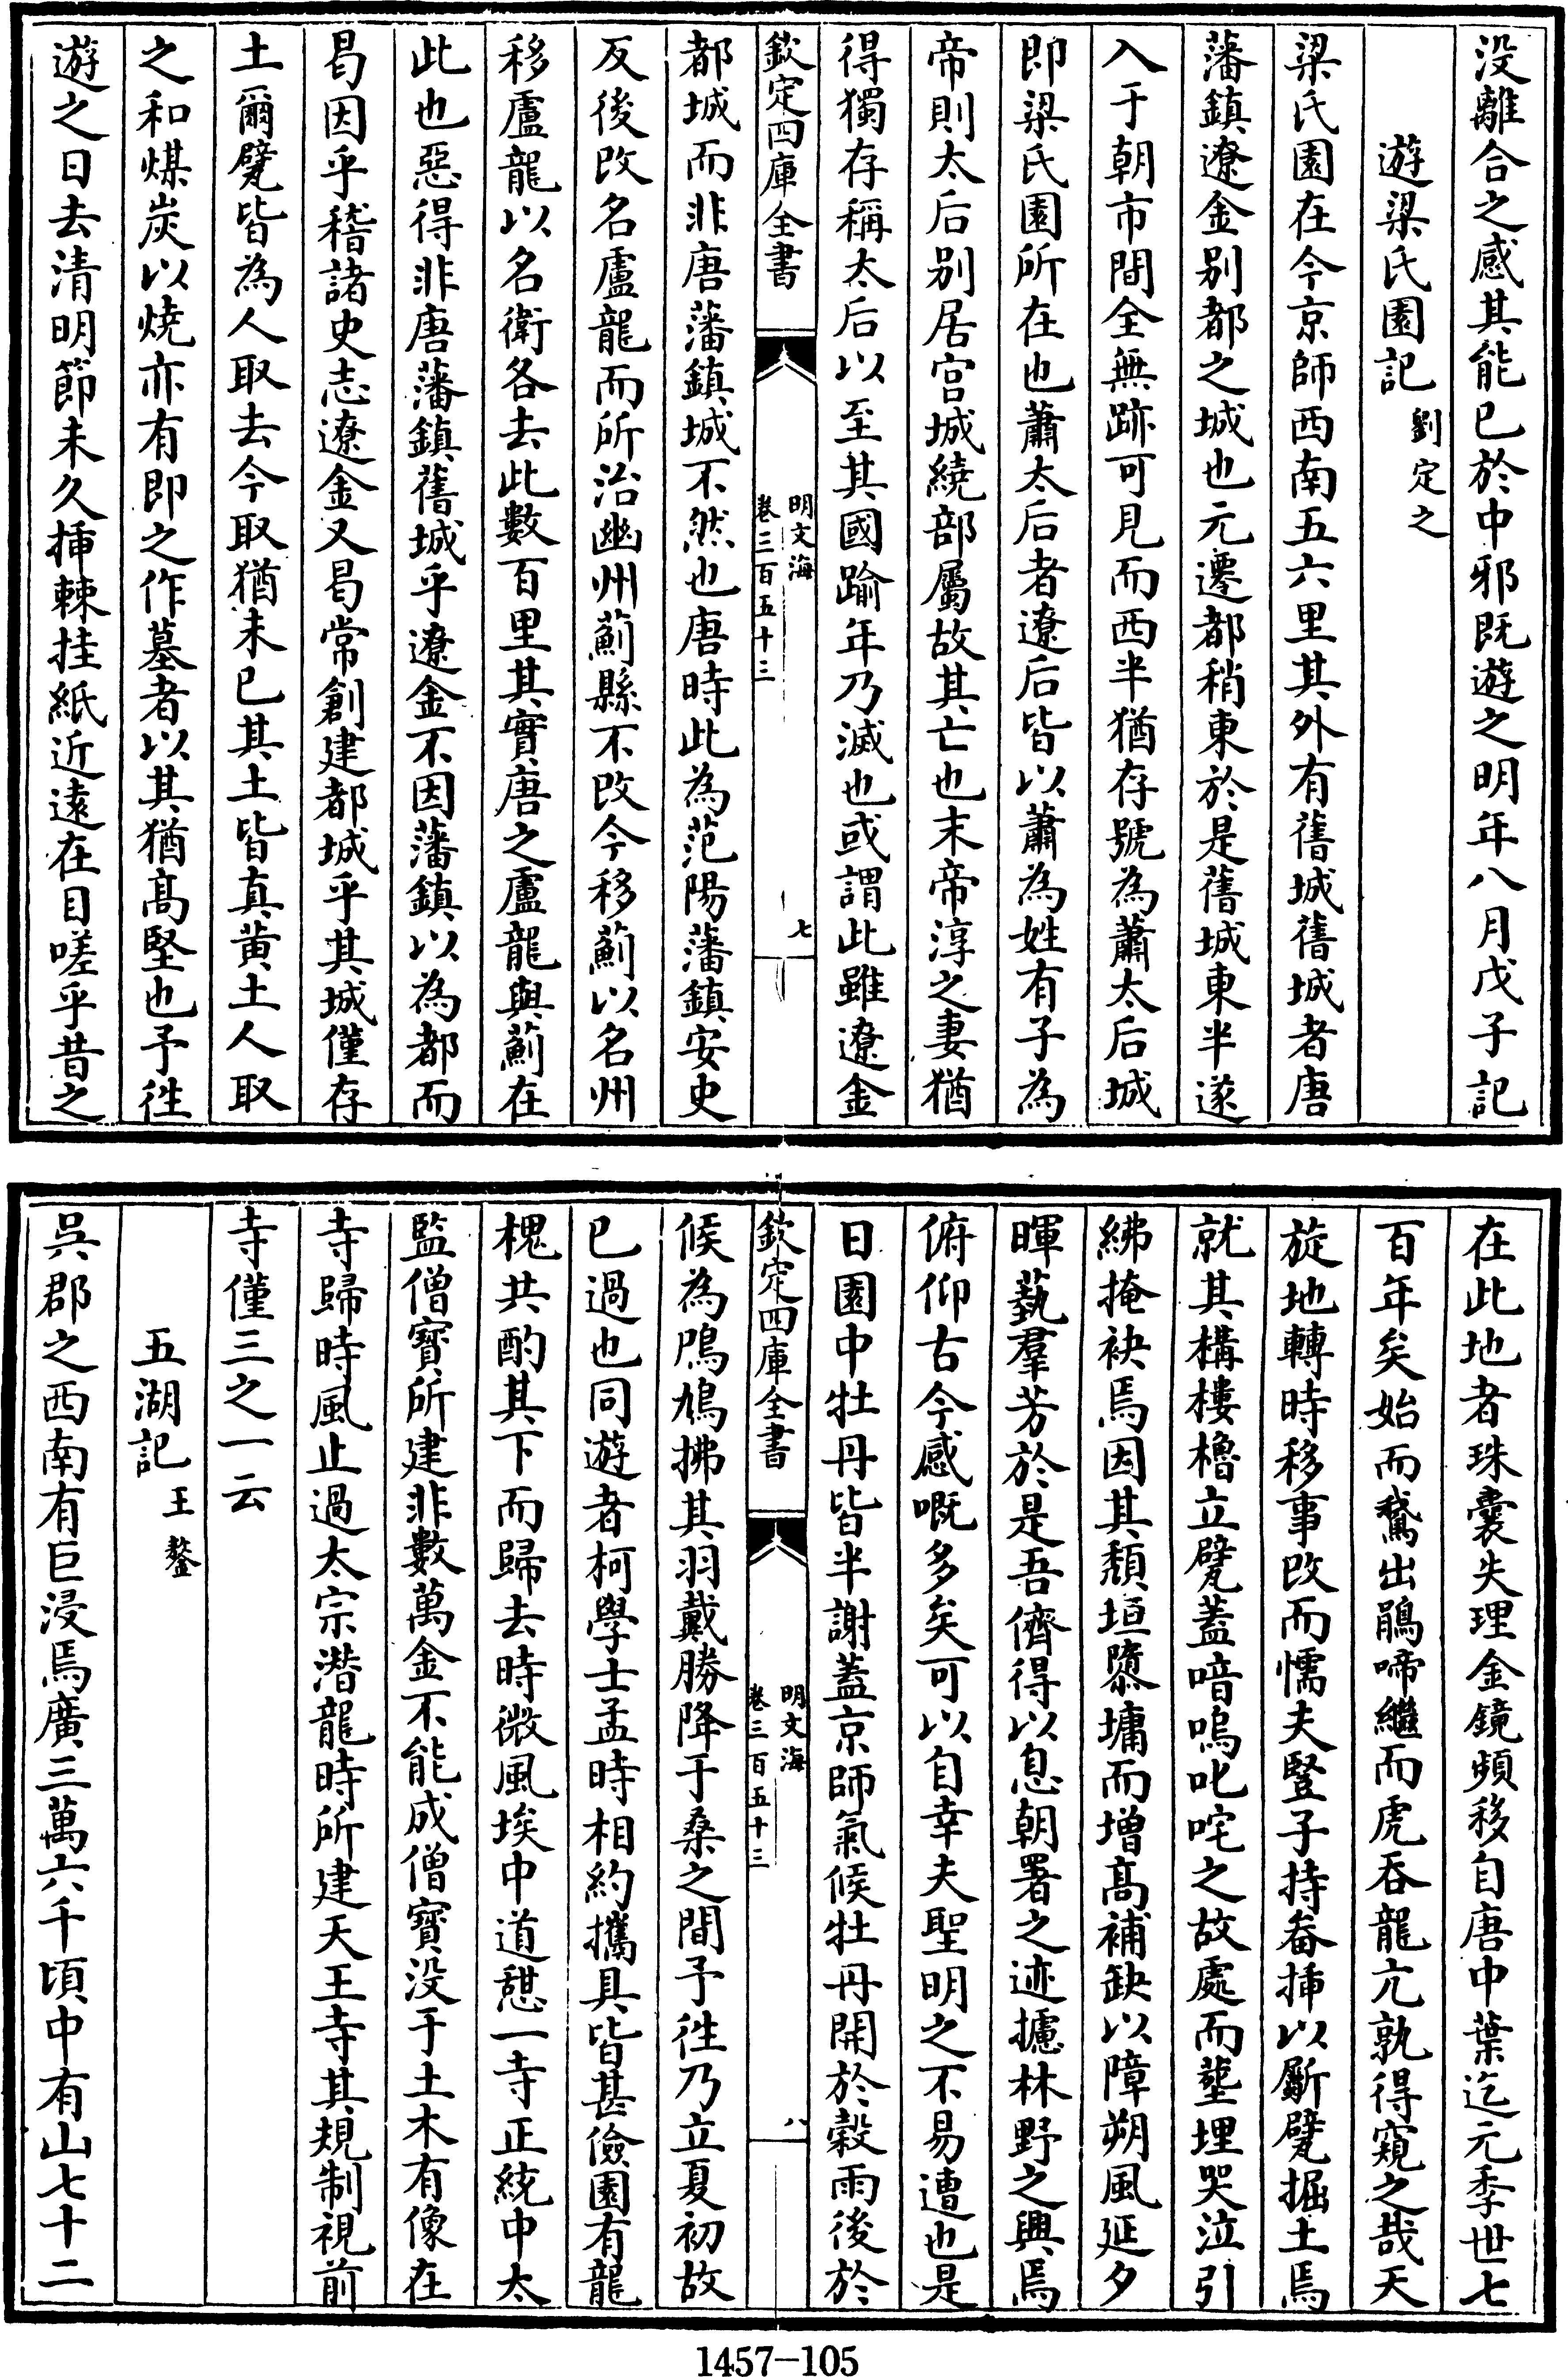 没離合之感其能已於中邪既遊之明年八月戊子記
遊梁氏園記 劉定之
梁氏園在今京師西南五六里其外有舊城舊城者唐
藩鎮遼金别都之城也元遷都稍東於是舊城東半遂
入于朝市間全無跡可見而西半猶存號為蕭太后城
即梁氏園所在也蕭太后者遼后皆以蕭為姓有子為
帝則太后别居宫城繞部屬故其亡也末帝淳之妻猶
得獨存稱太后以至其國踰年乃滅也或謂此雖遼金
欽定四庫全書
明文海
卷三百五十三
七
都城而非唐藩鎮城不然也唐時此為范陽藩鎮安史
反後改名盧龍而所治幽州薊縣不改今移薊以名州
移盧龍以名衛各去此數百里其實唐之盧龍與薊在
此也惡得非唐藩鎮舊城乎遼金不因藩鎮以為都而
曷因乎稽諸史志遼金又曷常創建都城乎其城僅存
土爾甓皆為人取去今取猶未已其土皆真黄土人取
之和煤炭以燒亦有即之作墓者以其猶髙堅也予徃
遊之日去清明節未久挿棘挂紙近遠在目嗟乎昔之
在此地者珠囊失理金鏡頻移自唐中葉迄元季世七
百年矣始而鵞出鵑啼繼而虎吞龍亢孰得窺之哉天
旋地轉時移事改而懦夫豎子持畚挿以斸甓掘土焉
就其構樓櫓立甓蓋喑嗚叱咤之故處而塟埋哭泣引
紼掩袂焉因其頽垣隳墉而增髙補缺以障朔風延夕
暉蓺羣芳於是吾儕得以息朝署之迹攄林野之興焉
俯仰古今感嘅多矣可以自幸夫聖明之不易遭也是
日園中牡丹皆半謝蓋京師氣候牡丹開於穀雨後於
欽定四庫全書
明文海
卷三百五十三
八
候為鳲鳩拂其羽戴勝降于桑之間予徃乃立夏初故
已過也同遊者柯學士孟時相約攜具皆甚儉園有龍
槐共酌其下而歸去時微風埃中道憇一寺正統中太
監僧寳所建非數萬金不能成僧寳没于土木有像在
寺歸時風止過太宗潛龍時所建天王寺其規制視前
寺僅三之一云
五湖記 王鏊
吳郡之西南有巨浸焉廣三萬六千頃中有山七十二
1457-105